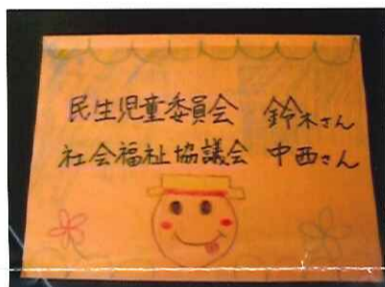 民生児童委員会 鈴木さん
社会福祉協議会 中西さん